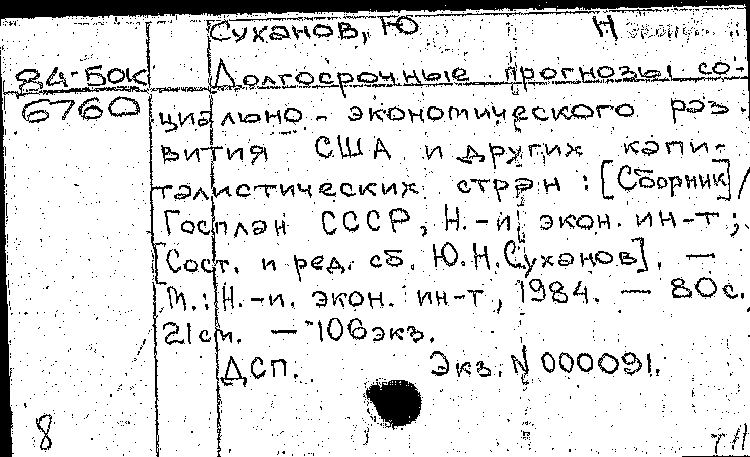 Суханов, Ю Н
84-БОК Долгосрочные прогнозы со-
6760 циально-экономического раз-
вития США и других капи-
талистических стран : [Сборник] /
Госплан СССР, Н.-и. экон. ин-т ;
[Сост. и ред. сб. Ю.Н.Суханов]. —
М. : Н.-и. экон. ин-т, 1984. — 80с.
21см. — 106экз.
ДСП. Экз. N 000091.
8